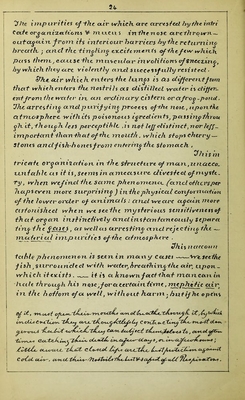 24
The impurities of the air which are arrested by the intri
cate organizations & mucus in the nose are thrown
out again from its interior barriers by the returning
breath; and the tingling excitements of the few which
pass them, cause the muscular involitions of sneezing,
by which they are violently and successfully resisted.
The air which enters the lungs is as different from
that which enters the nostrils as distilled water is differ-
ent from the water in an ordinary cistern or a frog-pond.
The arresting and purifying process of the nose, upon the
atmosphere with its poisonous ingredients, passing throu
gh it, though less perceptible, is not less distinct, nor less
important than that of the mouth, which stops cherry-
stones and fish-bones from entering the stomach.
This in
tricate organization in the structure of man, unacco
untable as it is, seems in a measure divested of myste-
ry, when we find the same phenomena, (and others per
haps even more surprising) in the physical conformation
of the lower order of animals: and we are again more
astonished when we see the mysterious sensitiveness of
that organ instinctively and instantaneously separa
ting the gases, as well as arresting and rejecting the
material impurities of the atmosphere.
This unaccoun
table phenomenon is seen in many cases — we see the
fish, surrounded with water, breathing the air, upon
which it exists. — it is a known fact that man can in
hale through his nose, for a certain time, mephitic air,
in the bottom of a well, without harm; but if he opens
of it, must open their mouths and breathe through it, by which
indiscretion they are thoughtlessly contracting the most dan
gerous habit which they can subject themselves to, and often
times catching their death in a few days, or in a few hours;
little aware that closed lips are the best protection against
cold air, and their Nostrils the best & safest of all Respirators.